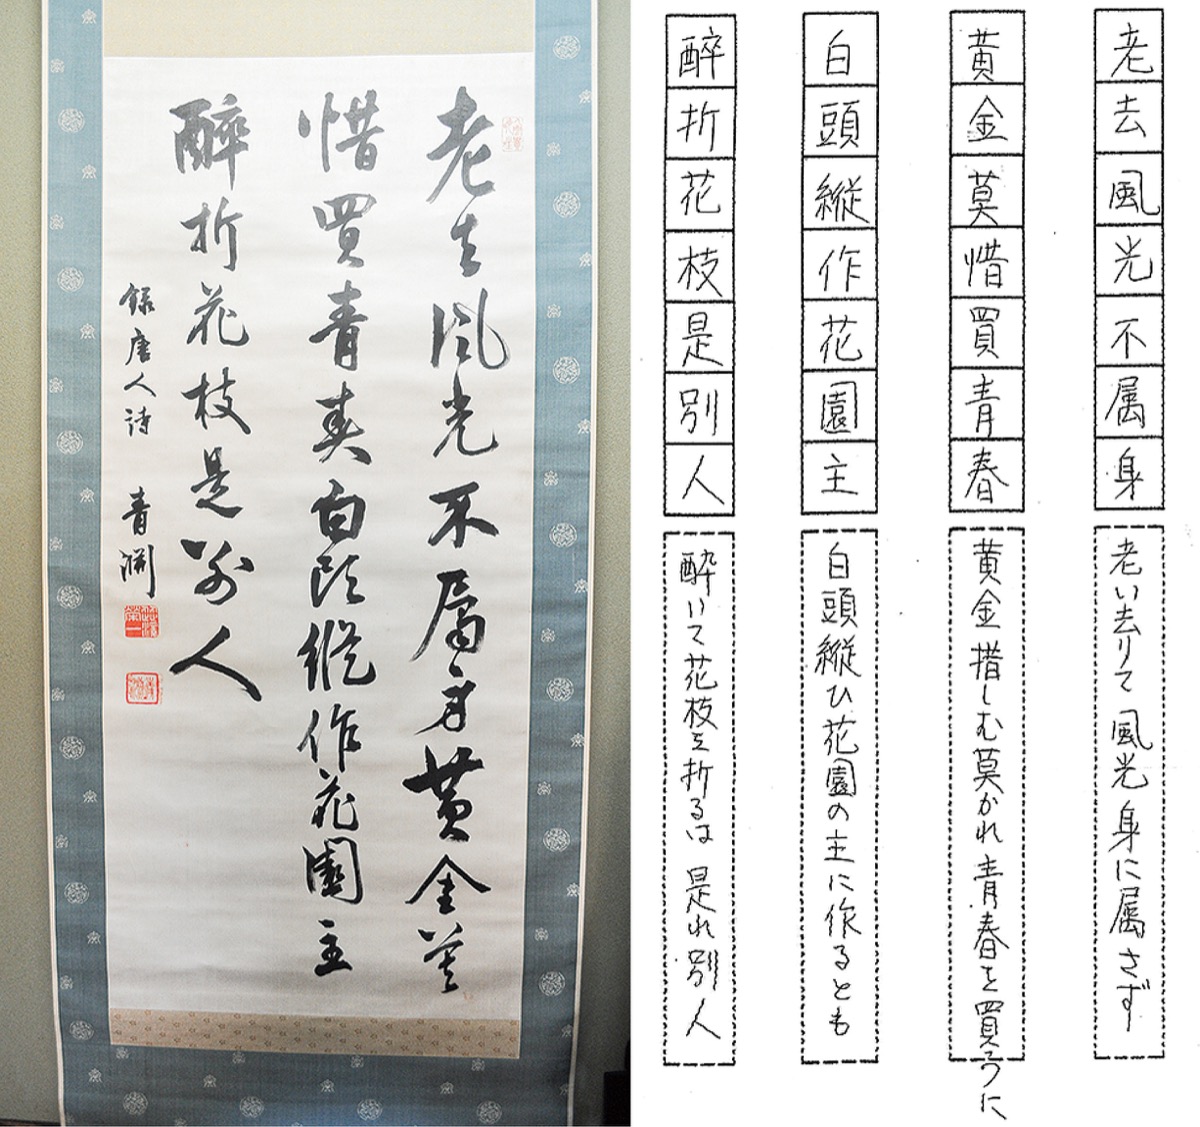 老去風光不属身黄金莫
惜買青春白頭縱作花園主
醉折花枝是別人
録唐人詩 青淵
老去風光不属身
老い去りて 風光 身に属さず
黄金莫惜買青春
黄金 措しむ莫かれ 青春を買うに
白頭縱作花園主
白頭 縱ひ 花園の主に作るとも
醉折花枝是別人
酔いて花枝を折るは 是れ 別人